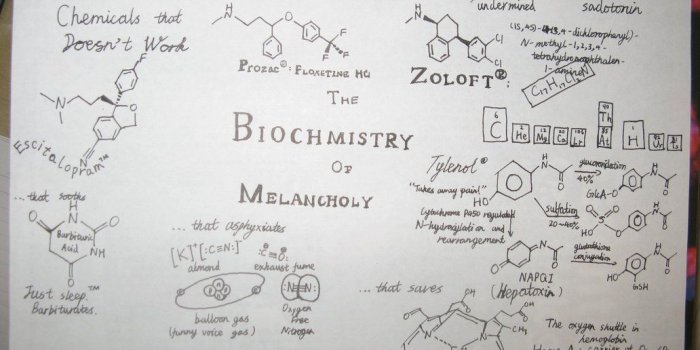 Chemicals that
Doesn't Work
Escitalopram™
Prozac®: Floxetine HCl
undermined sadotonin
(1S,4S)-4-(3,4-dichlorophenyl)-
N-methyl-1,2,3,4-
tetrahydronaphthalen-
1-amine
Zoloft®:
The
Biochmistry
Of
Melancholy
C He Mg Ca Lr Th At I H
Tylenol®
"Takes away pain!"
Cytochrome P450 regulated
N-hydroxylation and
rearrangement
glucuronidation
40%
GlcA-O
sulfation
20~40%
glutathione
conjugation
GSH
NAPQI
(Hepatoxin)
... that sooths
Barbituric
Acid
Just sleep.™
Barbiturates.
... that asphyxiates
[K]⁺[:C≡N:]⁻
:C≡O:
almond
exhaust fume
balloon gas
(funny voice gas)
:N≡N:
Oxygen
Free
Nitrogen
... that saves
The oxygen shuttle in
hemoglobin